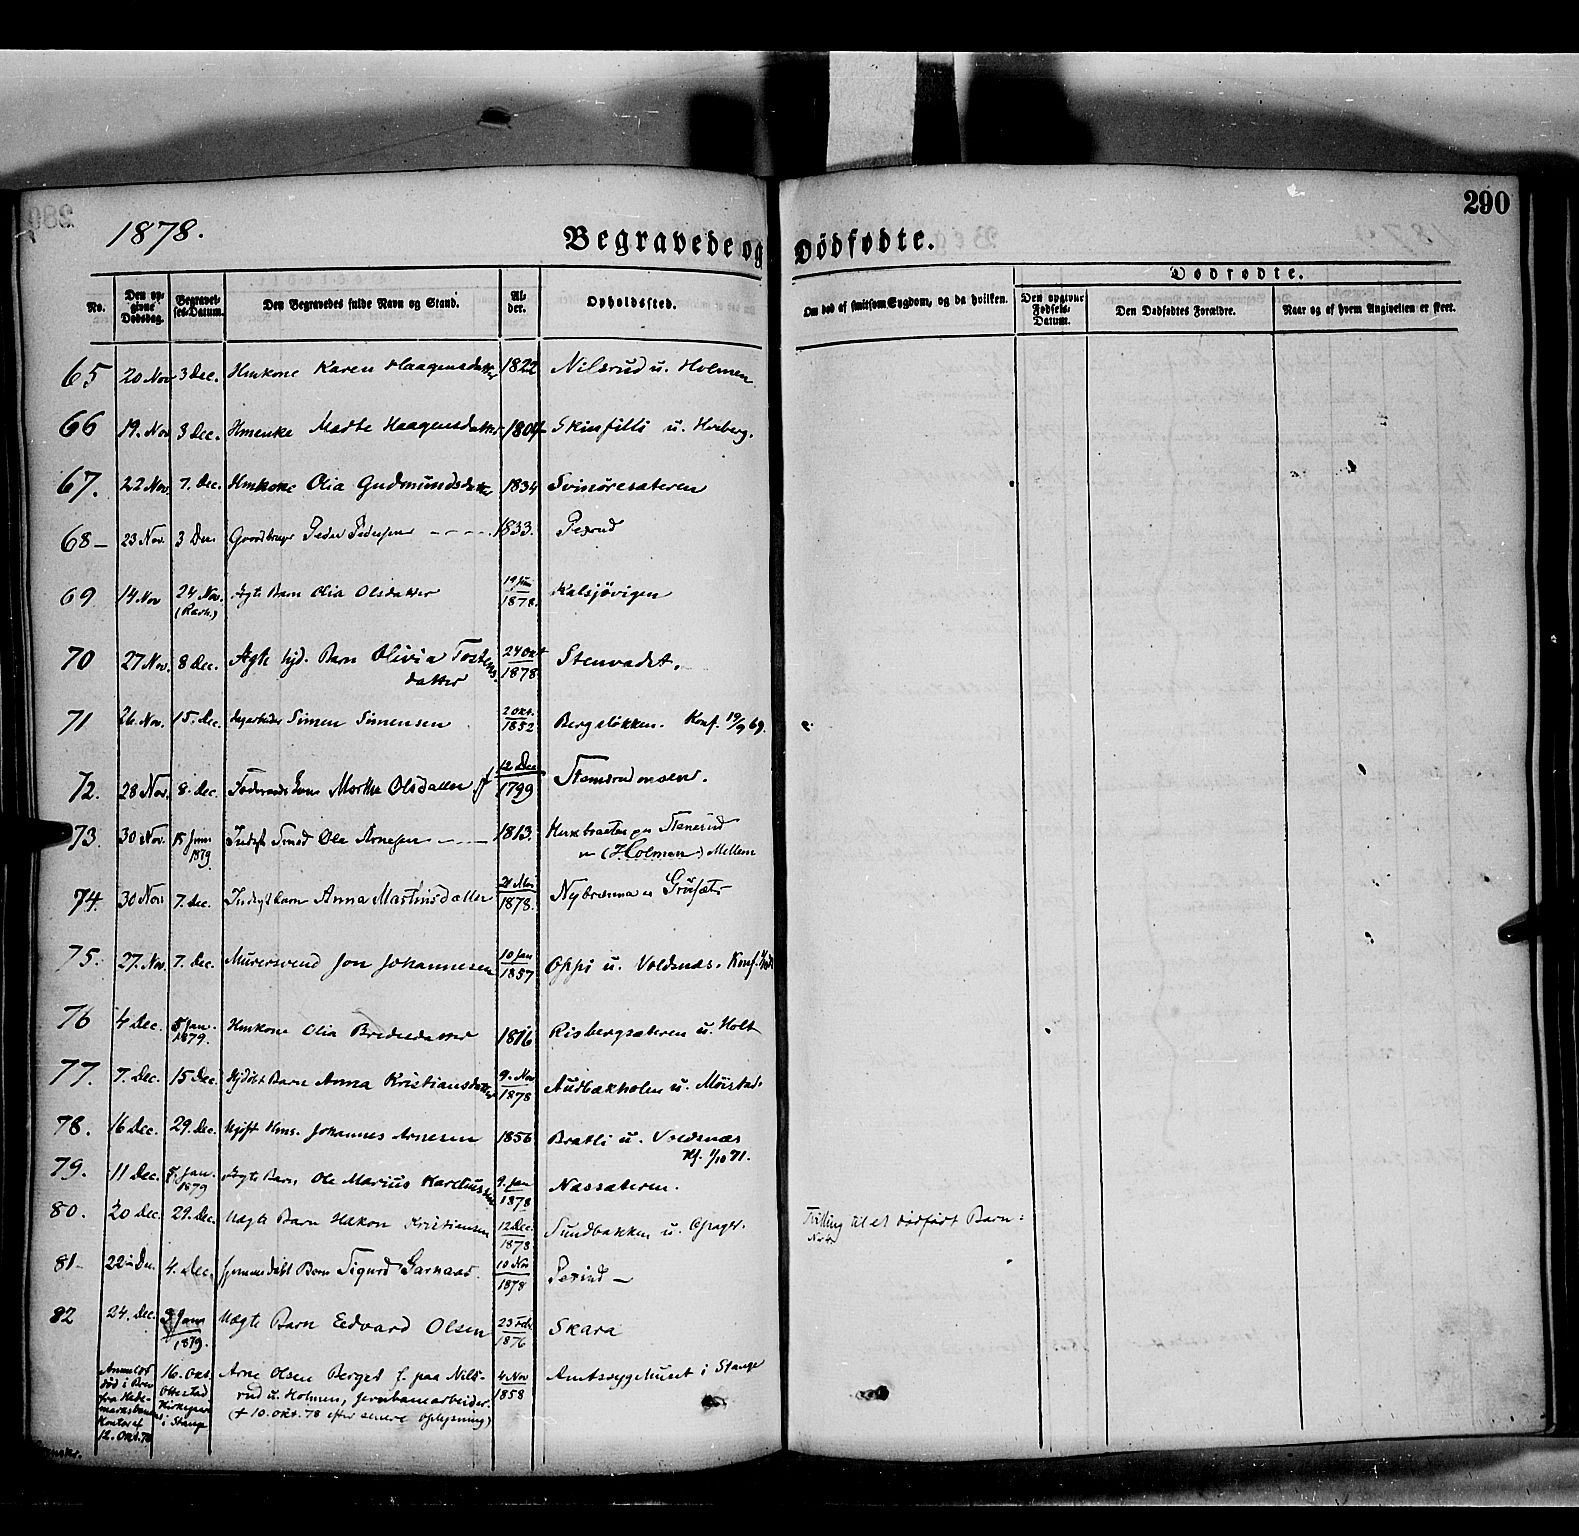 1878.
Begravede og Dødfødte.
290
Dødfødte.
No.
Den opgivne Dødsdag.
Begravelses-Datum.
Den Begravedes fulde Navn og Stand.
Alder.
Opholdssted.
Om død af smitsom Sygdom, og da hvilken.
Den opgivne Fødsels-Datum.
Den Dødfødtes Forældre.
Naar og af hvem Angivelsen er skeet.
65 20 Nov 3 Dec. Hmkone Karen Haagensdatter 1822 Nilsrud u. Holmen.
66 19. Nov 3 Dec. Hmenke Marte Haagensdatter 1804 Skinfilli u. Hverberg.
67. 22 Nov. 7. Dec. Hmkone Olia Gudmundsdatter 1834 Svinöresæteren
68 – 23 Nov. 3 Dec Peder Pedersen - - - - 1833.
69 14 Nov 24 Nov. Ægte Barn Olia Olsdatter 19 Juni 1878. Kalsjövigen
70 27 Nov. 8 Dec. Ægte hjd. Barn Olivia Tostensdatter 24 Okt 1878 Stenvadet.
71 26. Nov. 15. Dec. Simen Simensen 2 Okt. 1852 Bergsløkken. Konf. 19/9 69.
72. 28 Nov. 8. Dec. Marthe Olsdatter 12 Dec 1799 Stemsrudmoen.
73. 30 Nov. 15 Janr 1879. Inderst Smed Ole Arnesen 1813.
(Holmen) Mellem
74. 30 Nov 7. Dec. Inderst barn Anna Martinsdatter 21 Mai 1878. Nybrænna u Grüsæt
75. 27. Nov. 7. Dec. Murersvend Jon Johannesen 10 Jan 1857 Oppi u. Voldsnæs. Konf.
76 4 Dec. 5 Jan. 1879. Hmkone Olia Bredesdatter 1816 Risbergsæteren u. Holt
77. 7. Dec. 15 Dec. Hjdöbt Barn Anna Kristiansdatter 9. Nov 1878 Audbækholen u. Möistad.
78. 16 Dec. 29. Dec. Ugift Hms. Johannes Arnesen 1856 Bratli u. Voldsnæs
Kf. 1/10 71.
79. 11 Dec. 5 Jan. 1879 Ægte Barn Ole Marius Kareliussen 9. Jan 1878 Næssæteren.
80. 20 Dec. 29. Dec. Uægte Barn Hakon Kristiansen 12 Dec. 1878 Sundbakken u. Opsagt. Tvilling til et dødfødt Barn:
81 – 22 Dec. 4. Dec. hjemmedøbt Barn Sigurd Garnaas. 10 Nov 1878
82 24. Dec. 5 Janr 1879. Uægte Barn Edvard Olsen 23 Febr 1876 Skara
Anmeldt död i Brev fra Hedemarksbanens Kontor af 12. Okt. 78
16. Okt. Ottestad Kirkegaard i Stange
Arne Olsen Berget f. paa Nilsrud u. Holmen, jernbanearbeider.
(+ 10. Okt. 78 efter senere Oplysning)
4 Nov 1858
Amtssygehuset i Stange